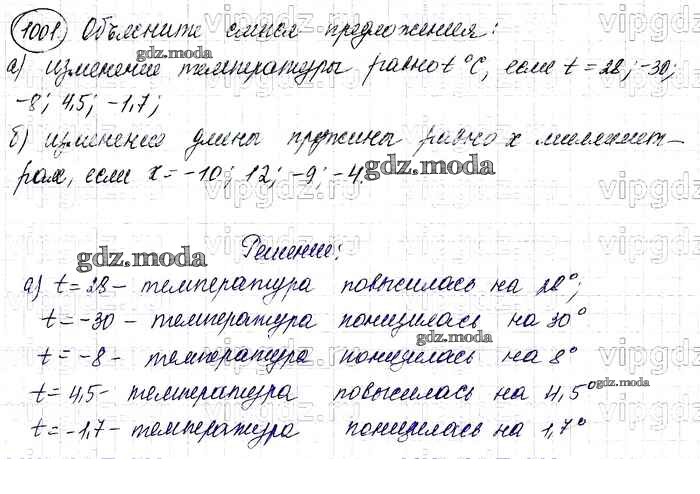 1001. Объясните смысл предложения:
а) изменение температуры равно t °C, если t = 28; -30;
-8; 4,5; -1,7;
б) изменение длины пружины равно x миллимет-
рам, если x = -10; 12; -9; -4.
gdz.moda
gdz.moda
gdz.moda
Решение:
а) t = 28 - температура повысилась на 28°;
t = -30 - температура понизилась на 30°
gdz.moda
t = -8 - температура понизилась на 8°
t = 4,5 - температура повысилась на 4,5°
gdz.moda
t = -1,7 - температура понизилась на 1,7°